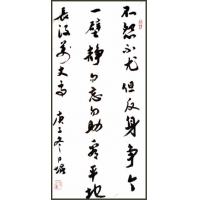 不怨不尤但反身争个
一壁静勿忘勿助看平地
長得萬丈高 庚子冬月